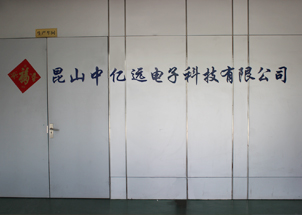 福
昆山中亿远电子科技有限公司